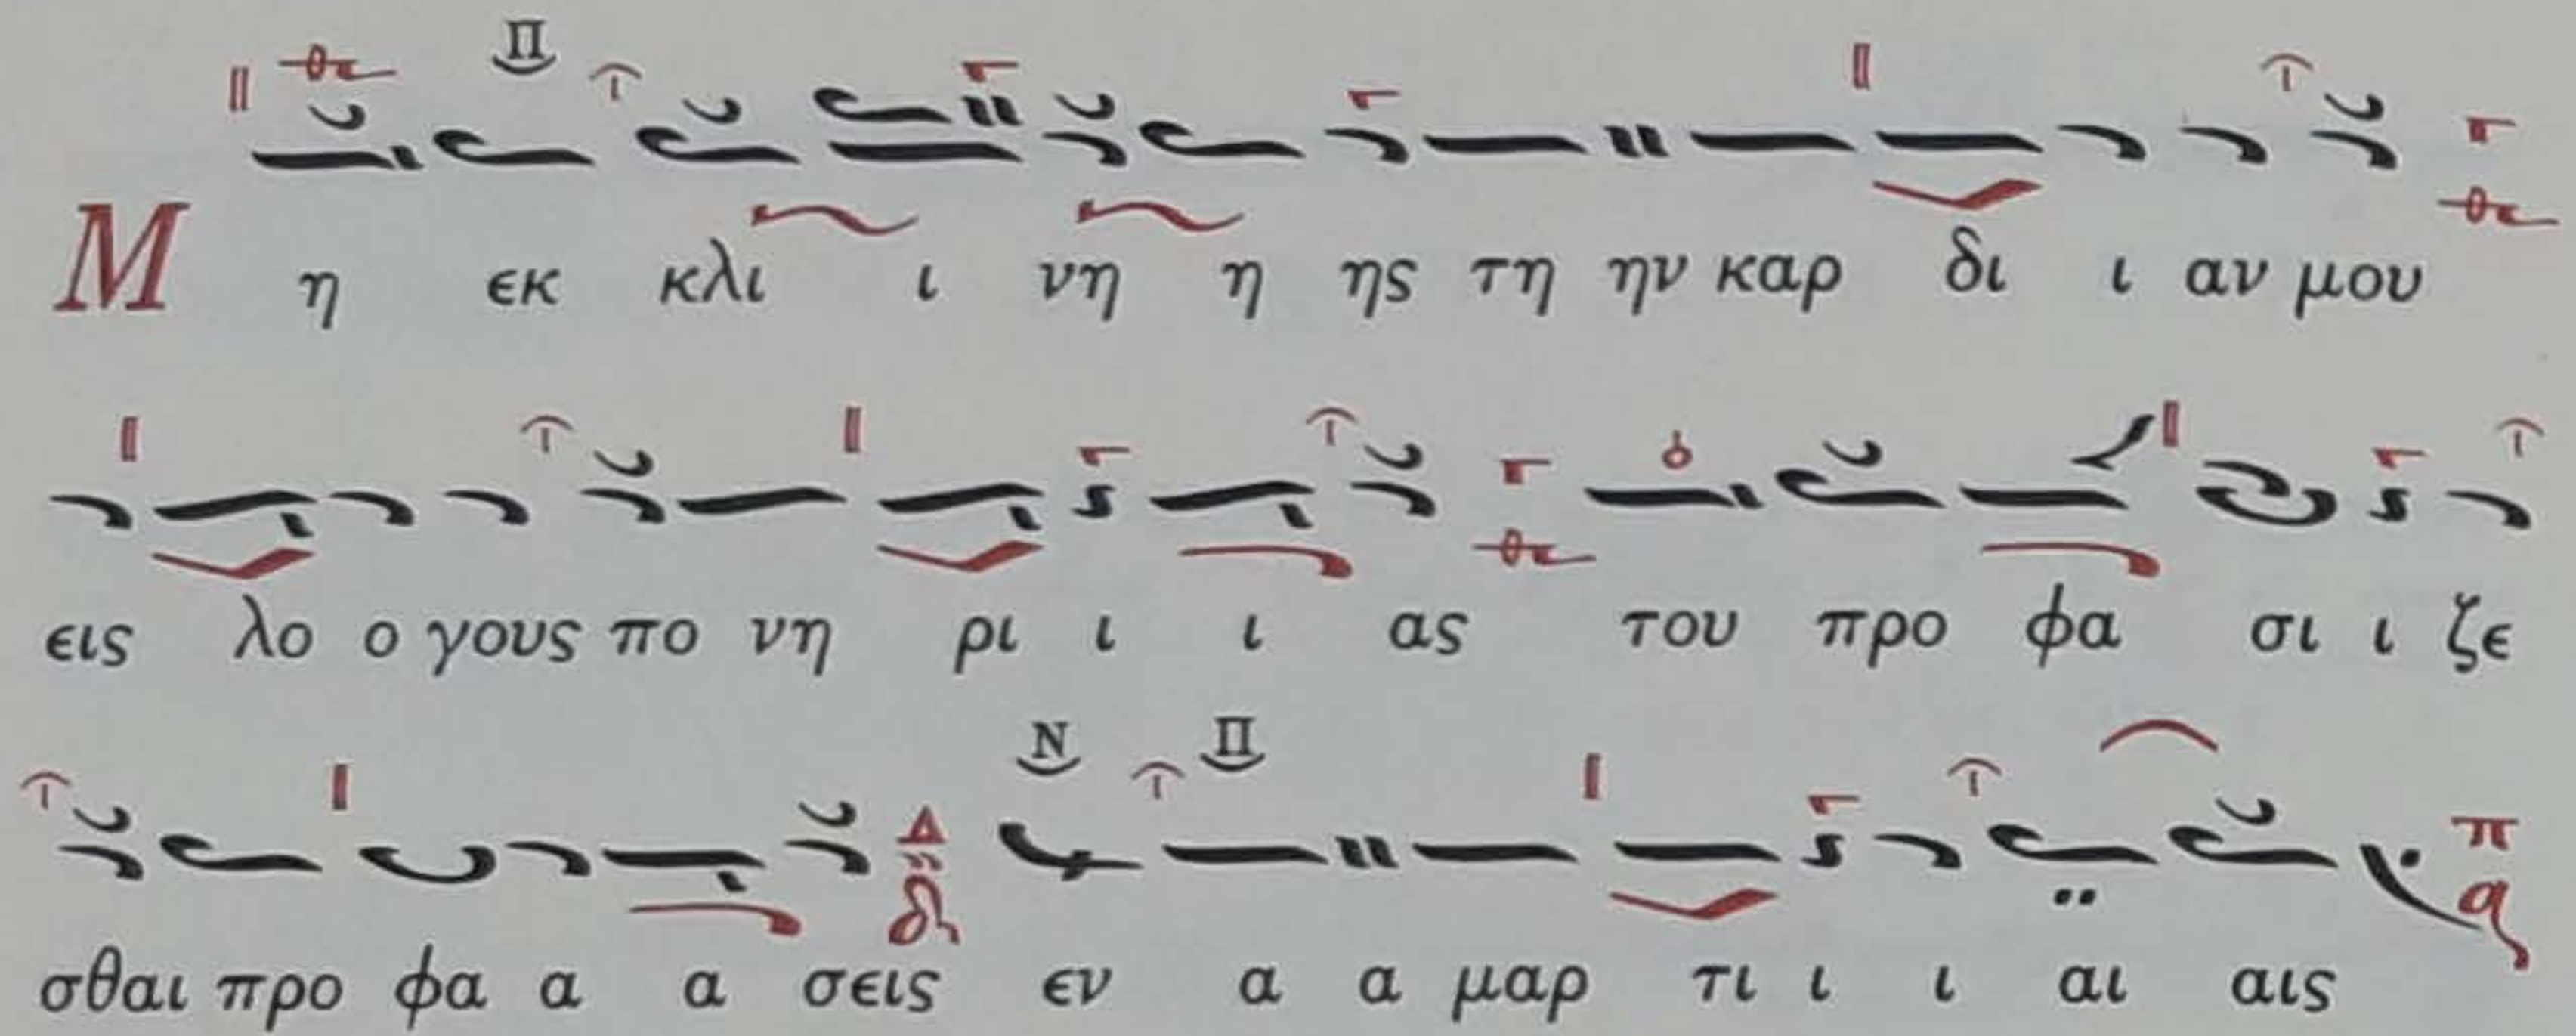 Π
Μ η εκ κλι ι νη η ης τη ην καρ δι ι αν μου
εις λο ο γους πο νη ρι ι ι ας του προ φα σι ι ζε
Ν Π
σθαι προ φα α α σεις εν α α μαρ τι ι ι αι αις